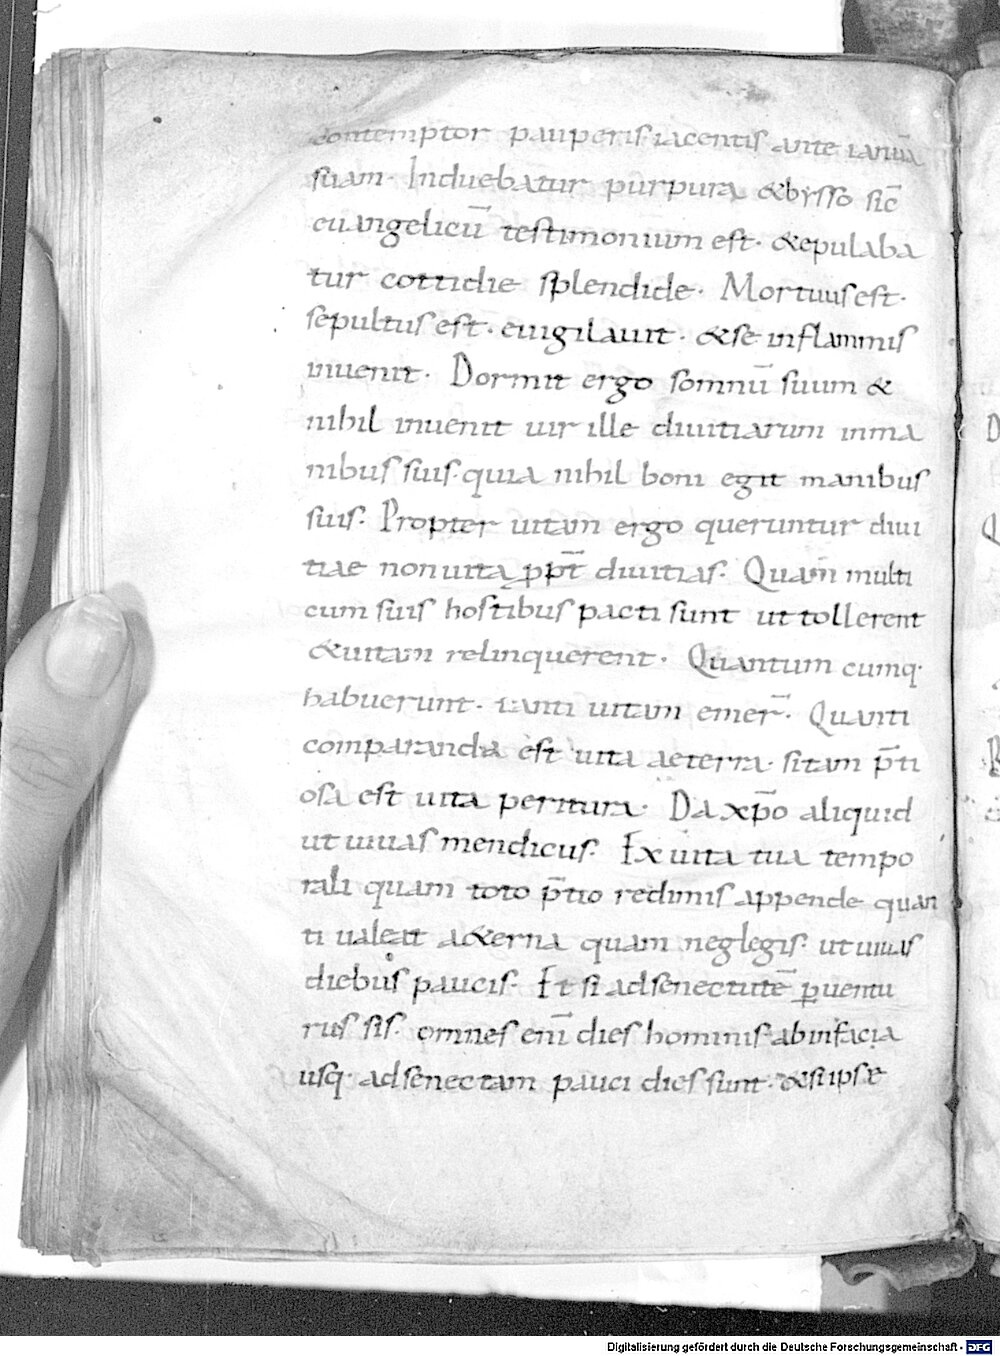 contemptor pauperis iacentis ante ianuā
suam. Induebatur purpura &bysso sic̄
euangelicū testimonium est. &epulaba
tur cottidie splendide. Mortuus est.
sepultus est. euigilauit. &se inflammis
inuenit. Dormit ergo somnū suum &
nihil inuenit uir ille diuitiarum inma
nibus suis. quia nihil boni egit manibus
suis. Propter uitam ergo queruntur diui
tiae non uita ꝓpt̄ diuitias. Quam multi
cum suis hostibus pacti sunt ut tollerent
&uitam relinquerent. Quantum cumq.
habuerunt. tanti uitam emer̄. Quanti
comparanda est uita aeterna. si tam p̄ti
osa est uita peritura. Da xp̄o aliquid
ut uiuas mendicus. Ex uita tua tempo
rali quam toto p̄tio redimis appende quan
ti ualeat a&erna quam neglegis. ut uiuas
diebus paucis. Et si adsenectutē ꝑuentu
rus sis. omnes eni̅ dies hominis abinfacia
usq. adsenectam pauci dies sunt. &si ipse
Digitalisierung gefördert durch die Deutsche Forschungsgemeinschaft - DFG